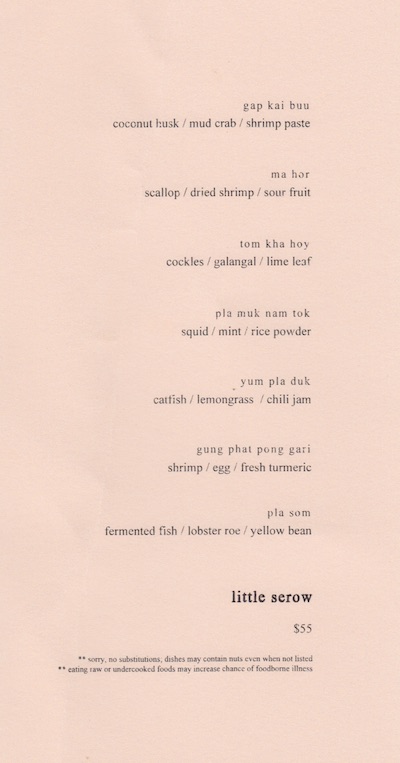 gap kai buu
coconut husk / mud crab / shrimp paste
ma hor
scallop / dried shrimp / sour fruit
tom kha hoy
cockles / galangal / lime leaf
pla muk nam tok
squid / mint / rice powder
yum pla duk
catfish / lemongrass / chili jam
gung phat pong gari
shrimp / egg / fresh turmeric
pla som
fermented fish / lobster roe / yellow bean
little serow
$55
** sorry, no substitutions; dishes may contain nuts even when not listed
** eating raw or undercooked foods may increase chance of foodborne illness